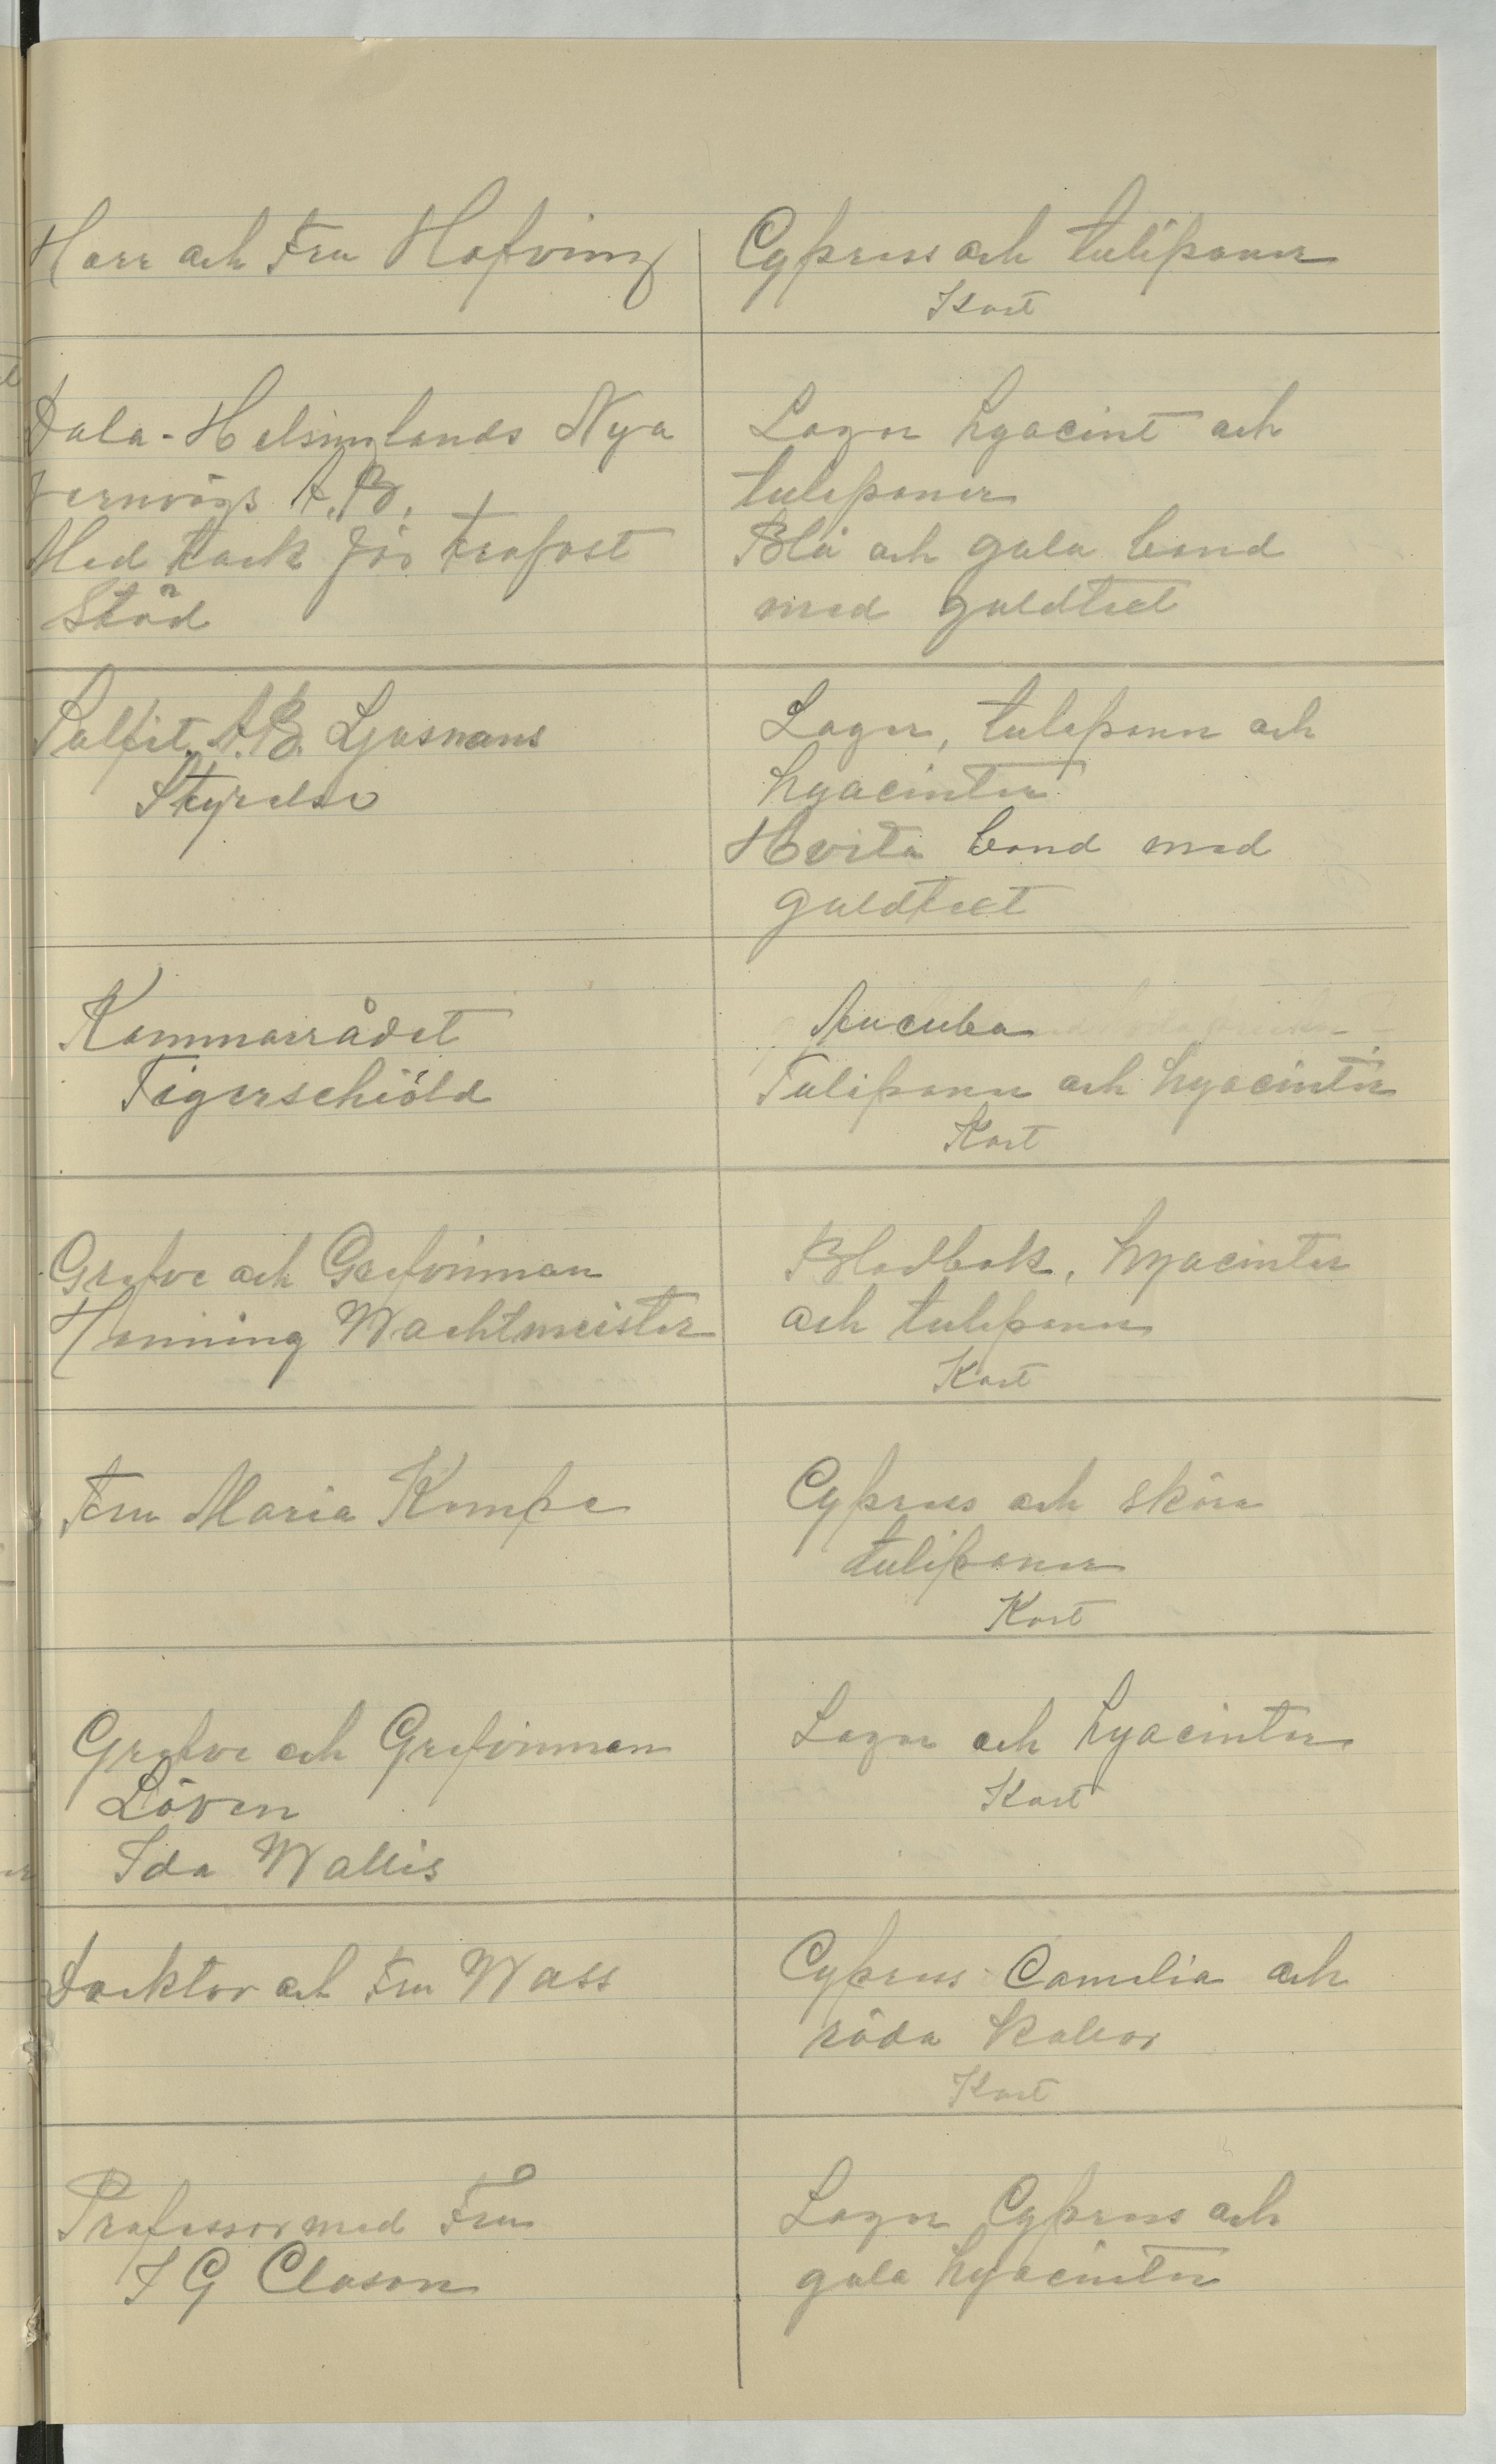 Herr och Fru Hofving
Cypress och tulipaner
Kort
Dala-Helsinglands Nya
Jernvägs A.B.
Med tack för trofast
Stöd
Lager hyacint och
tulipaner
Blå och gula band
med guldtext
Sulfit A.B. Ljusnans
Styrelse
Lager, tulipaner och
hyacinter
Hvita band med
guldtext
Kammarrådet
Tigerschiöld
Aucuba
Tulipaner och hyacinter
Kort
Grefve och Grefvinnan
Henning Wachtmeister
Blodbok, hyacinter
och tulipaner
Kort
Fru Maria Kempe
Cypress och skära
tulipaner
Kort
Grefve och Grefvinnan
Löven
Ida Wallis
Lager och hyacinter
Kort
Docktor och Fru Wass
Cypress Camelia och
röda kallor
Kort
Professor med Fru
I G Clason
Lager Cypress och
gula hyacinter